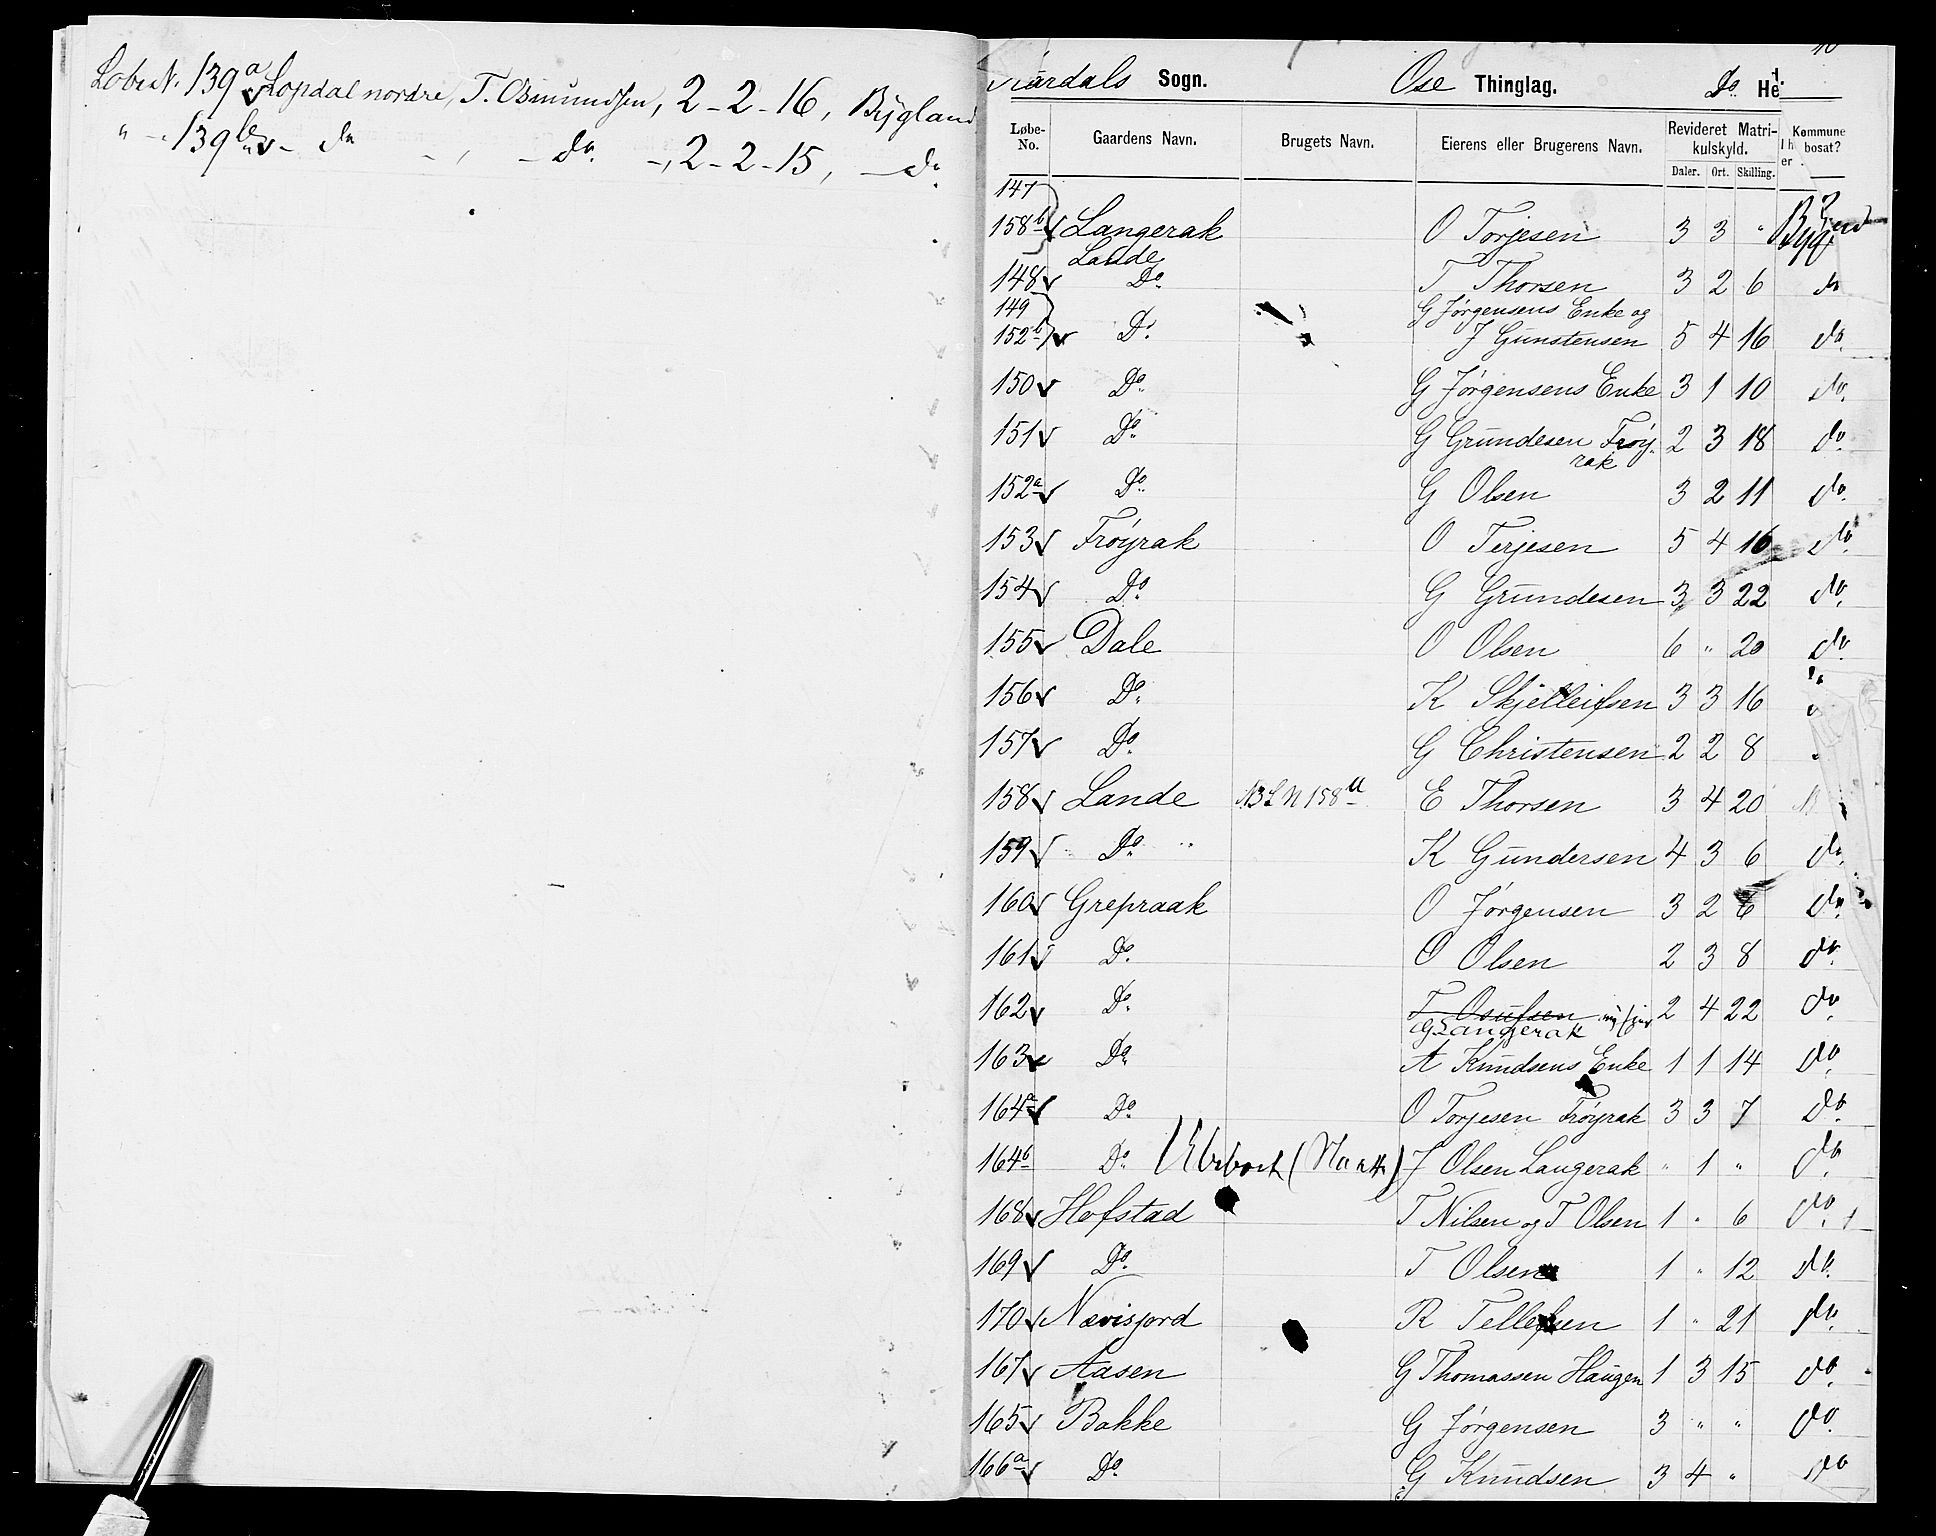 Løbe N. 139a Lopdal nordre, T. Osmundsen, 2-2-16, Bygland
" - 139b - do - , - Do. -, 2-2-15, - do
Aardals Sogn. Ose Thinglag. Do. He
Løbe-No. Gaardens Navn. Brugets Navn. Eierens eller Brugerens Navn. Revideret Matrikulskyld. Kommune bosat?
Daler. Ort. Skilling.
147
158b Langerak O Torjesen 3 3 " Bygland
148 Lande Do. T Thorsen 3 2 6 do
149 G Jørgensens Enke og
152b Do. J Gunstensen 5 4 16 do.
150 Do. G Jørgensens Enke 3 1 10 do.
151 Do. G Grundesen Frøy- 2 3 18 do.
rak
152a Do. G Olsen 3 2 11 do.
153 Frøyrak O Terjesen 5 4 16 do.
154 Do. G Grundesen 3 3 22 do.
155 Dale O Olsen 6 " 20 do.
156 Do. K Skjelleifsen 3 3 16
157 Do. G Christensen 2 2 8
158 Lande NB L N 158a E Thorsen 3 4 20
159 Do. " K Gundersen 4 3 6 do.
160 Grepraak O Jørgensen 3 2 6 do.
161 Do. O Olsen 2 3 8 do.
162 Do. T Osufsen 2 4 22 do.
G Langerak
163 Do. A Knudsens Enke 1 1 14 do.
164a Do. O Torjesen Frøyrak 3 3 7 Do.
164b Do. J Olsen Langerak " 1 " do.
168 Hofstad T Nilsen og T Olsen 1 " 6 do.
169 Do. T Olsen 1 " 12 do.
170 Nævisjord R Tellefsen 1 " 21 do.
167 Aasen G Thomassen Haugen 1 3 15 do.
165 Bakke G Jørgensen 3 " " do.
166a Do. G Knudsen 3 4 " do